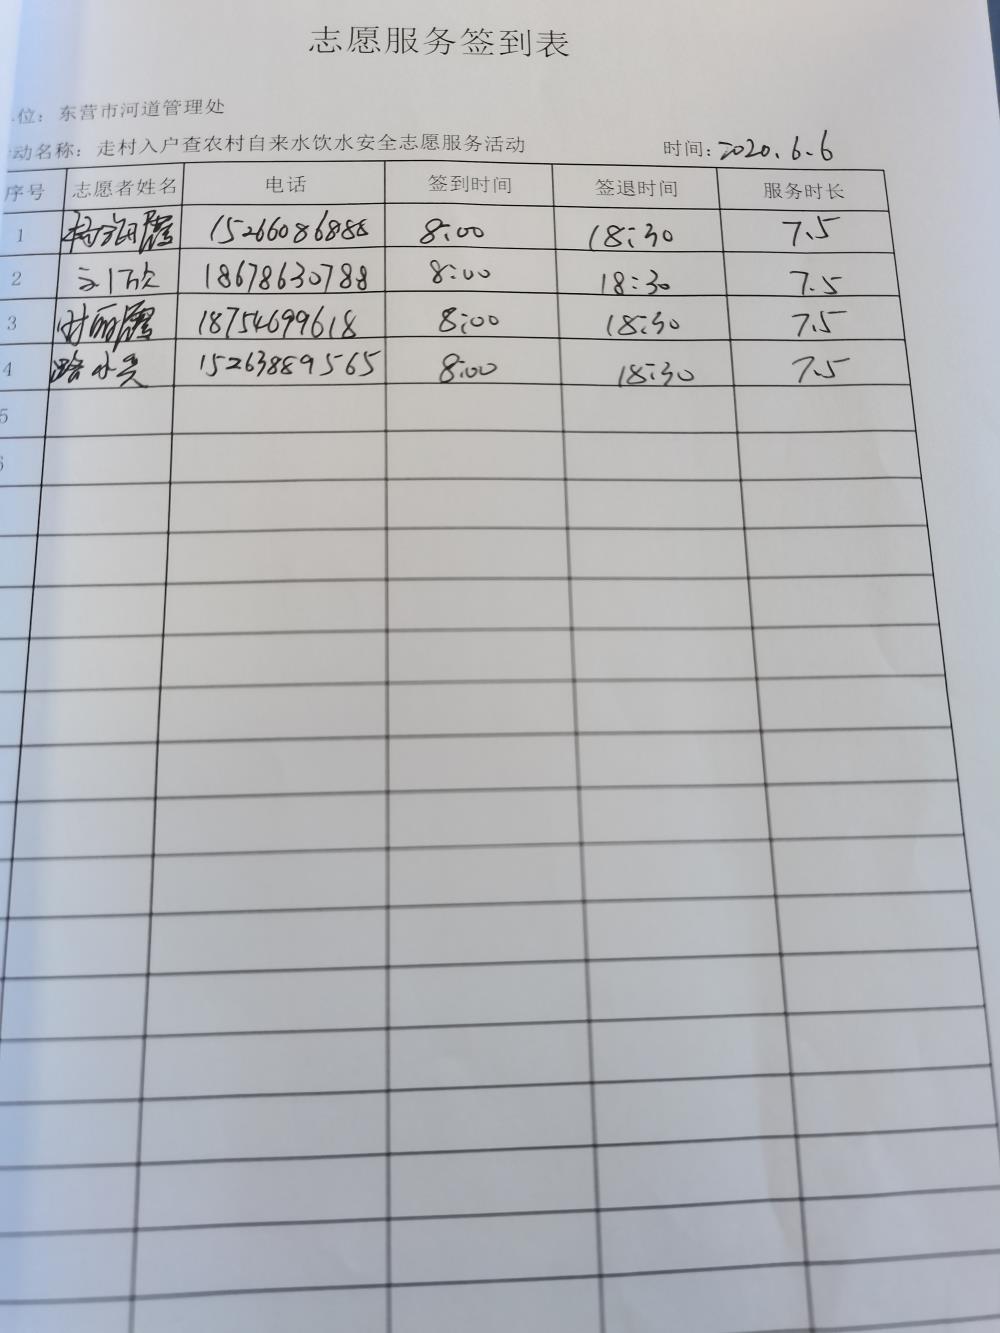 志愿服务签到表
位：东营市河道管理处
动名称：走村入户查农村自来水饮水安全志愿服务活动 时间：2020.6.6
序号 志愿者姓名 电话 签到时间 签退时间 服务时长
1 15266086888 8:00 18:30 7.5
2 18678630788 8:00 18:30 7.5
3 时丽霞 18754699618 8:00 18:30 7.5
4 15263889565 8:00 18:30 7.5
5